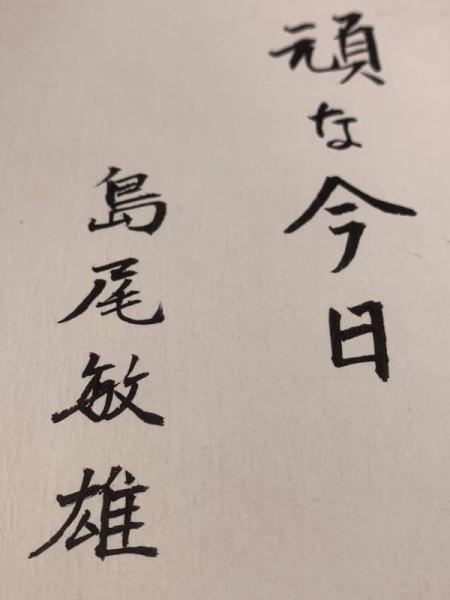 頑な今日
島尾敏雄